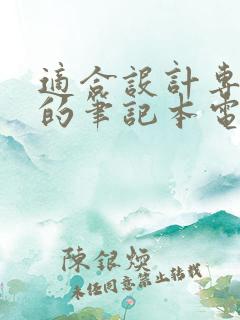 適合設計專
的筆記本電
陳銀煥
未經同意禁止轉載